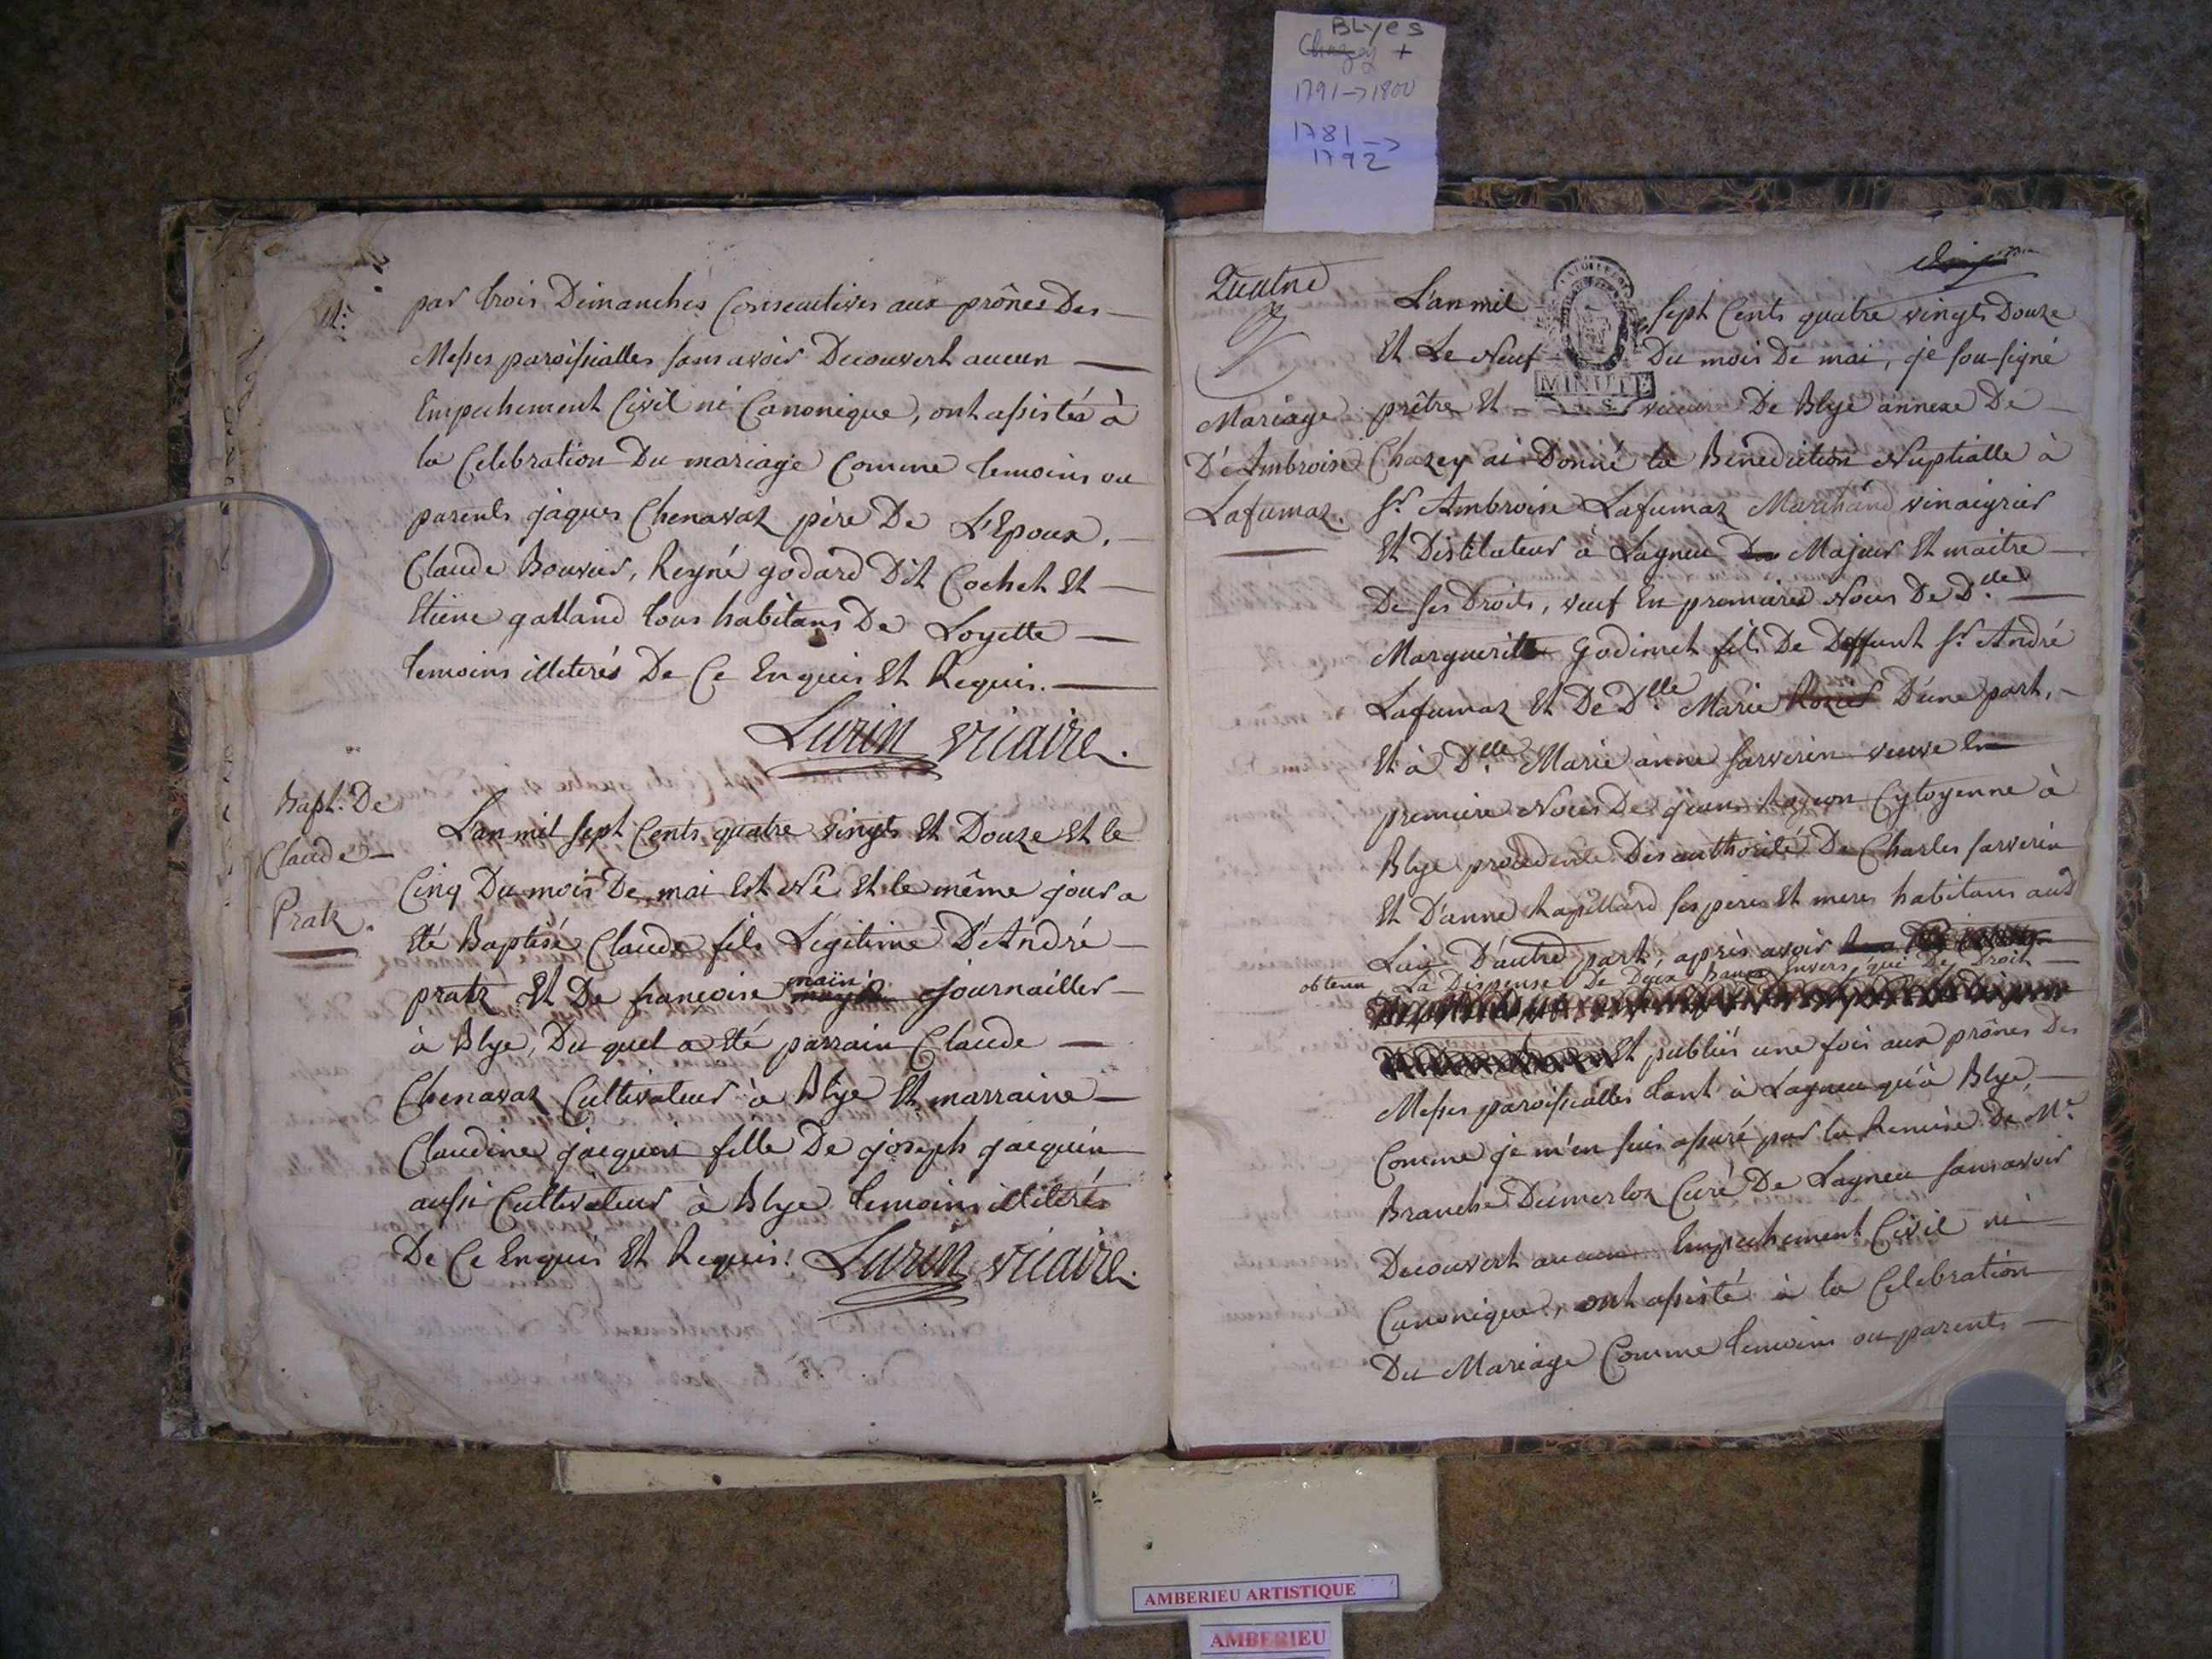 BLyes
Chazey +
1791 -> 1800
1781 ->
1792
par trois Dimanches Consecutives aux prônes Des
Messes paroissialles sans avoir Decouvert aucun
Empechement Civil ni Canonique, ont assistés à
la Celebration Du mariage Comme temoins ou
parents jâques Chenavaz père De L'Epoux,
Claude Bouvier, Reyné godard Dit Cochet Et
Etiene galland tous habitans De Loyette
temoins illeterés De Ce Enquis Et Requis.
Lurin vicaire.
Bapt. De
Claude
Pratz.
L'an mil sept Cents quatre vingts Et Douze Et le
Cinq Du mois De mai Est Né Et le même jour a
Eté Baptisé Claude fils Légitime D'André
pratz Et De francoise main journailler
à Blye, Du quel a Eté parrain Claude
Chenavaz Cultivateur à Blye Et marraine
Claudine jacquin fille De joseph jacquin
aussi Cultivateur à Blye temoins illiterés
De Ce Enquis Et Requis. Lurin vicaire.
Quatre
Mariage
D'Ambroise
Lafumaz.
L'an mil sept Cents quatre vingts Douze
Et Le Neuf Du mois De mai, je sou-signé
MINUTE
prêtre Et vicaire De Blye annexe De
Chazey ai Donné la Benediction Nuptialle à
Sr. Ambroise Lafumaz Marchand vinaigrier
Et Distilateur à Lagneu Majeur Et maitre
De ses Droits, veuf En premiere Noces De Dlle.
Marguerite Godimet fils De Deffunt Sr. André
Lafumaz Et De Dlle. Marie D'une part,
Et à Dlle. Marie anne Sarverin veuve En
premiere Noces De jean Cytoyenne à
Blye procedente Des authorités De Charles Sarverin
Et D'anne Rapillard ses peres Et meres habitans aud
Lieu D'autre part, après avoir
obtenu La Dispense De Deux Bancs Envers qui De Droit
Et publiés une fois aux prônes Des
Messes paroissialles tant à Lagneu qu'à Blye,
Comme je m'en suis assuré par la Remise De Mr.
Branche Dumerloz Curé De Lagneu sans avoir
Decouvert aucun Empechement Civil ni
Canonique, ont assisté à la Celebration
Du Mariage Comme temoins ou parents
AMBERIEU ARTISTIQUE
AMBERIEU